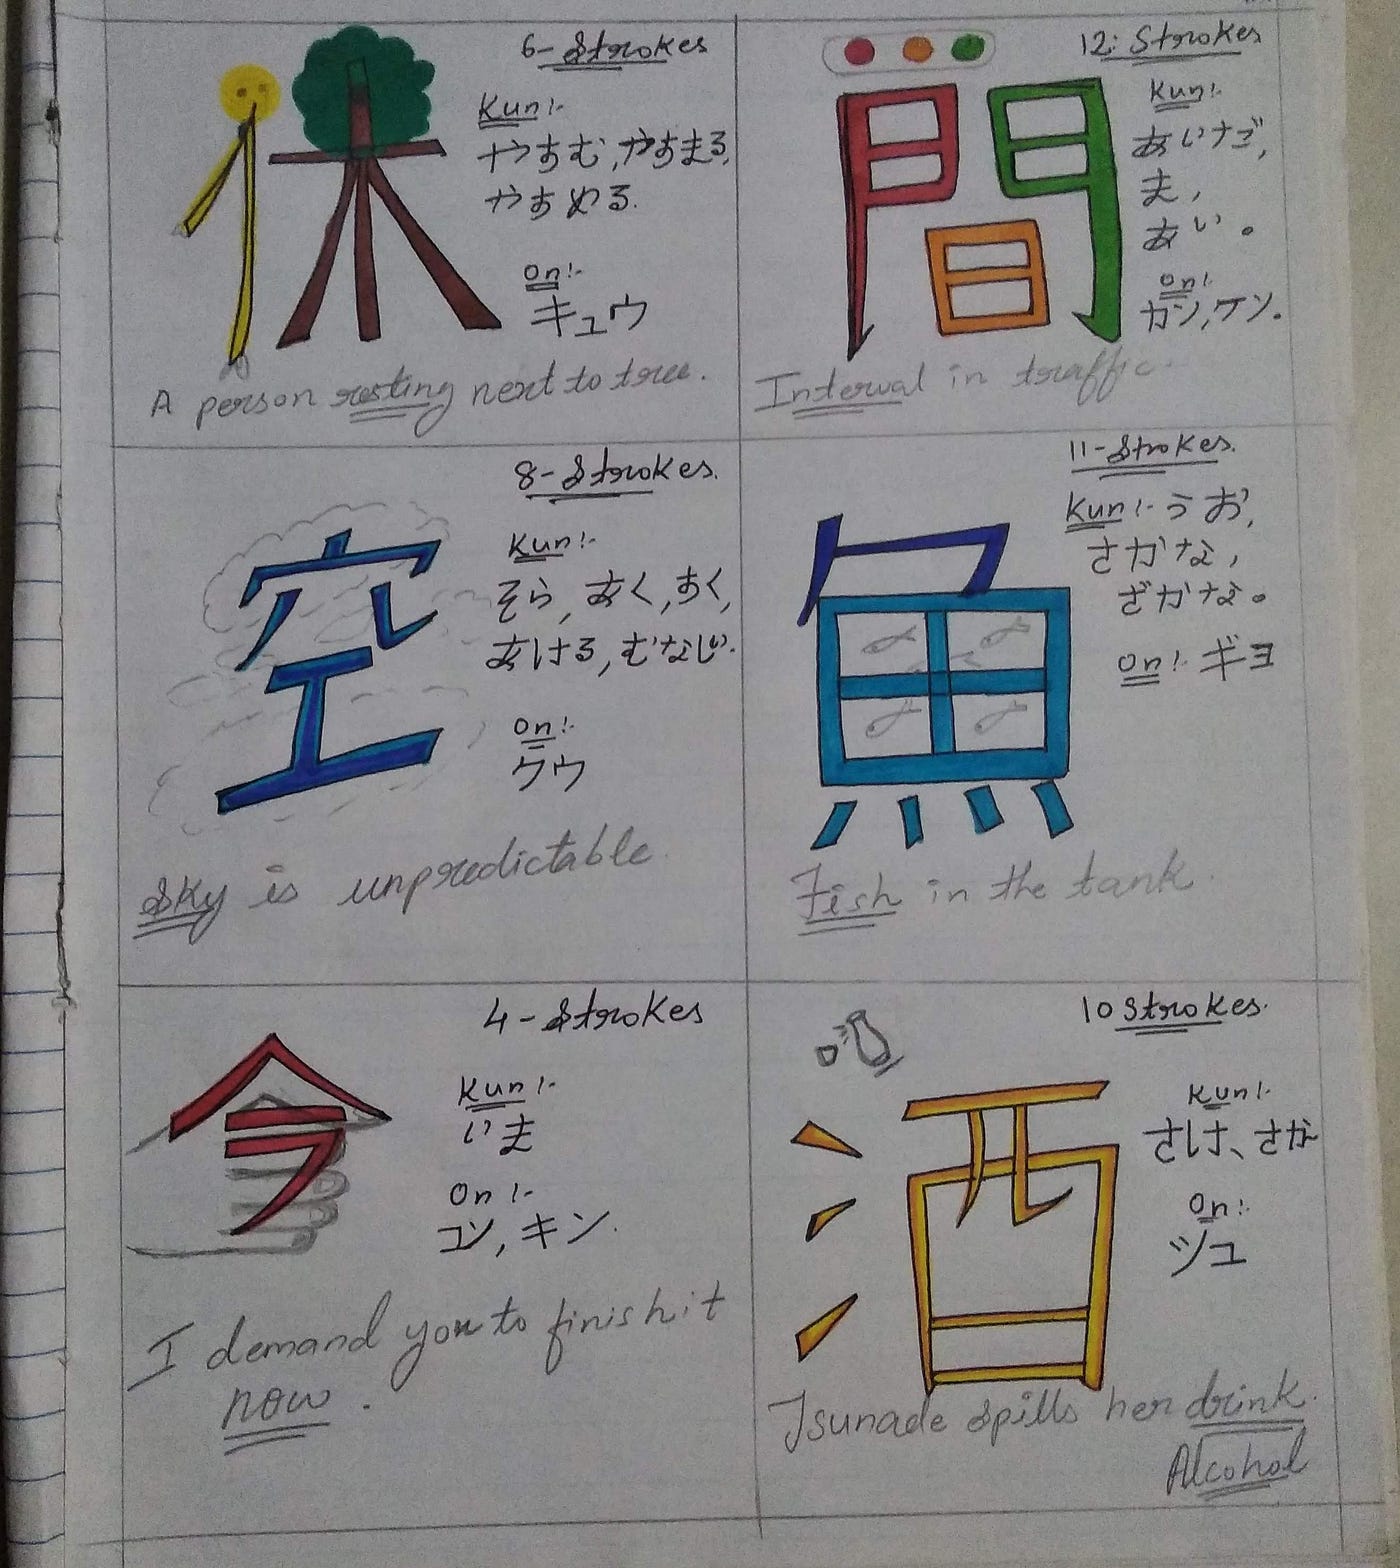 6-Strokes
休
Kun:-
やすむ,やすまる,
やすめる.
On:-
キュウ
A person resting next to tree.
12: Strokes
間
Kun:-
あいだ,
ま,
あい。
On:-
カン,ケン.
Interval in traffic.
8-Strokes.
空
Kun:-
そら,あく,すく,
あける,むなしい.
On:-
クウ
Sky is unpredictable
11-Strokes.
魚
Kun:- うお,
さかな,
ざかな。
On:- ギョ
Fish in the tank.
4-Strokes
今
Kun:-
いま
On:-
コン,キン.
I demand you to finish it
now.
10 Strokes.
酒
Kun:-
さけ、さか
On:-
シュ
Tsunade spills her drink.
Alcohol